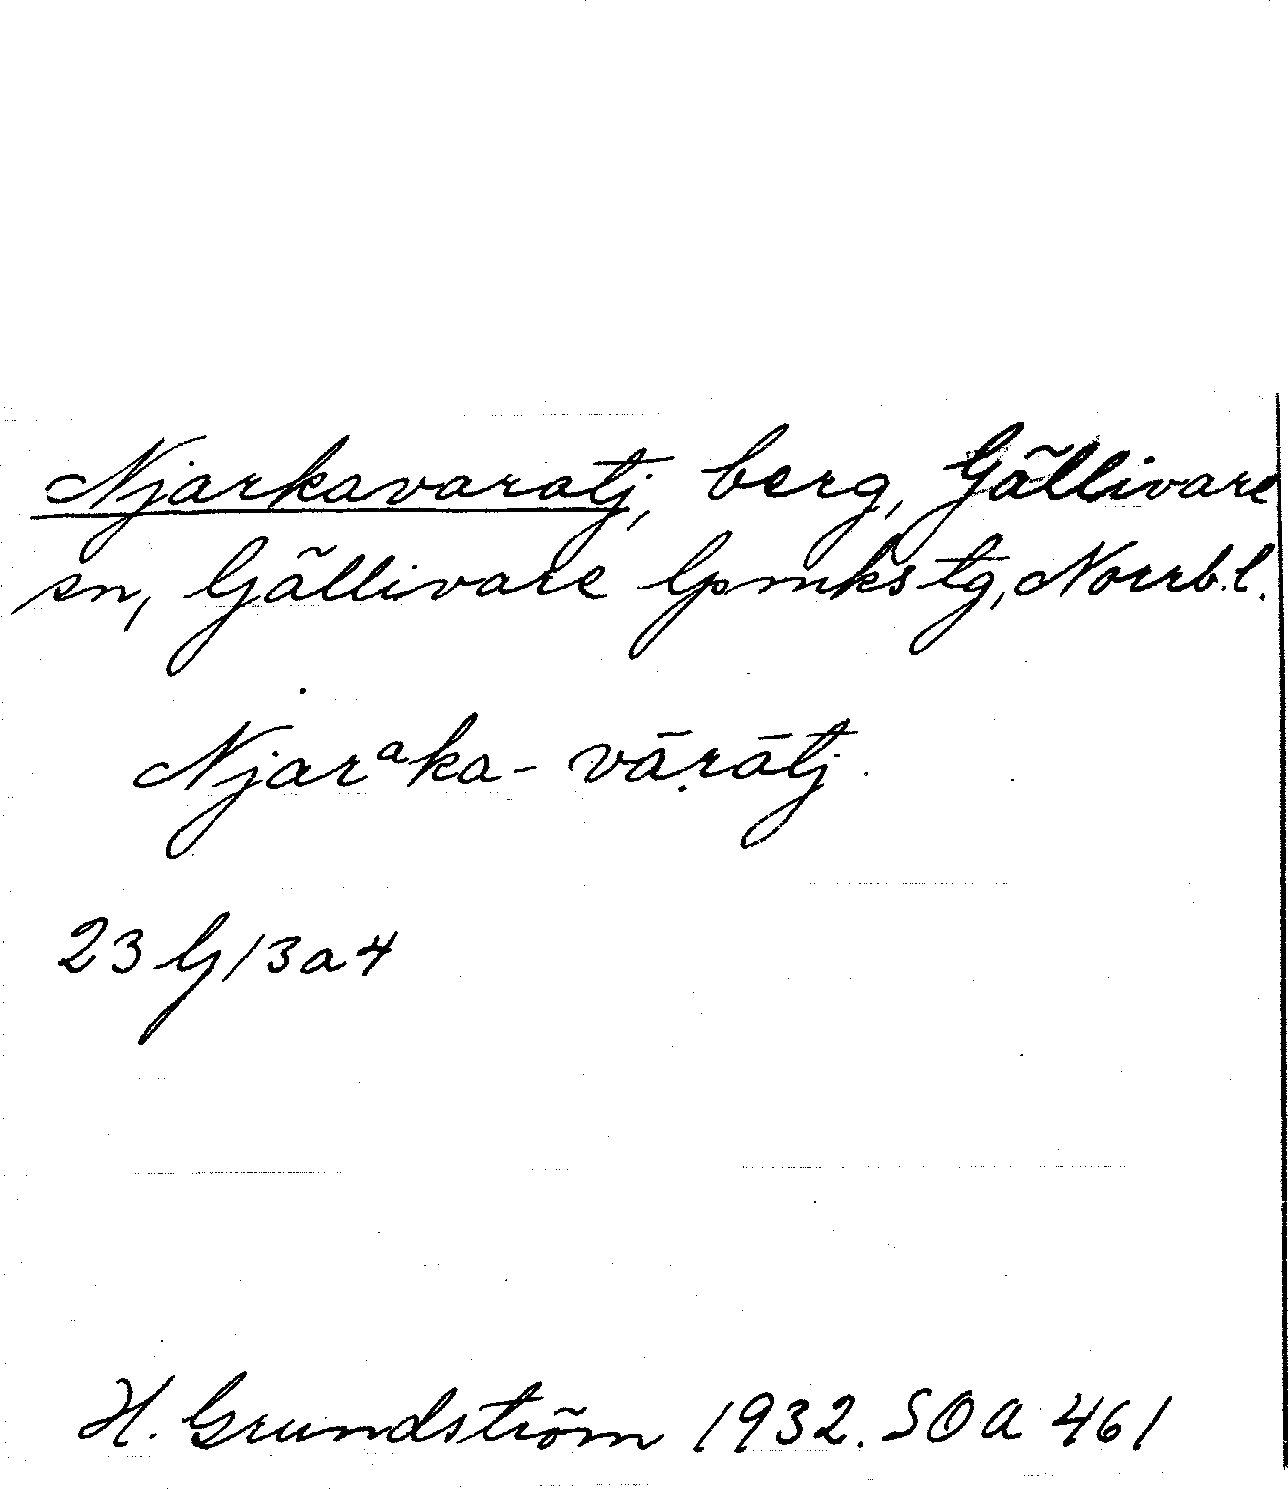 Njarkavaratj, berg, Gällivare
sn, Gällivare lpmkstg, Norrb. l.
Njarᵃka-vārātj.
23 G/3a4
H. Grundström 1932. SOA 461